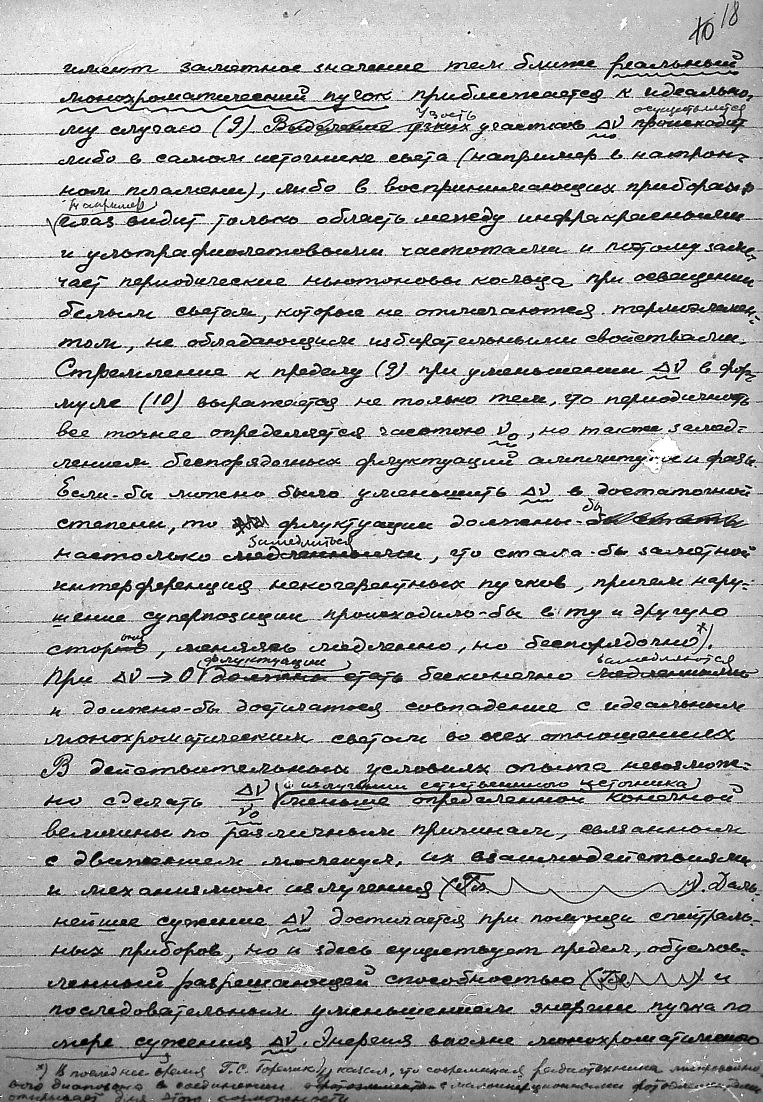 18
имеют заметное значение тем ближе реальный
монохроматический пучок приближается к идеально-
му случаю (9) Выделение узких участков Δν происходит
узость осуществляется
либо в самом источнике света (например в натрон-
ном пламени), либо в воспринимающих приборах,
например
глаз видит только область между инфракрасными
и ультрафиолетовыми частотами и потому заме-
чает периодические ньютоновы кольца при освещении
белым светом, которые не отмечаются термоэлемен-
том, не обладающим избирательными свойствами.
Стремление к пределу (9) при уменьшении Δν в фор-
муле (10) выражается не только тем, что периодичность
все точнее определяется частотою ν₀, но также замед-
лением беспорядочных флуктуаций амплитуды и фазы.
Если-бы можно было уменьшить Δν в достаточной
степени, то флуктуации должны-бы стать
бы
замедлиться
настолько медленными, что стала-бы заметной
интерференция некогерентных пучков, причем нару-
шение суперпозиции происходило-бы в ту и другую
сторону, меняясь медленно, но беспорядочно*).
флуктуации замедляются
При Δν → 0 должны стать бесконечно медленными
и должно-бы достигаться совпадение с идеальным
монохроматическим светом во всех отношениях
В действительных условиях опыта невозмож-
в излучении естественного источника
но сделать Δν/ν₀ меньше определенной конечной
величины по различным причинам, связанным
с движением молекул, их взаимодействиями
и механизмом излучения (Гл ). Даль-
нейшее сужение Δν достигается при помощи спектраль-
ных приборов, но и здесь существует предел, обуслов-
ленный разрешающей способностью (Гл ) и
последовательным уменьшением энергии пучка по
мере сужения Δν. Энергия вполне монохроматического
*) В последнее время Г.С. Горелик указал, что современная радиотехника
вого диапазона в соединении с малоинерционными фотоэлементами
открывает для этого возможности